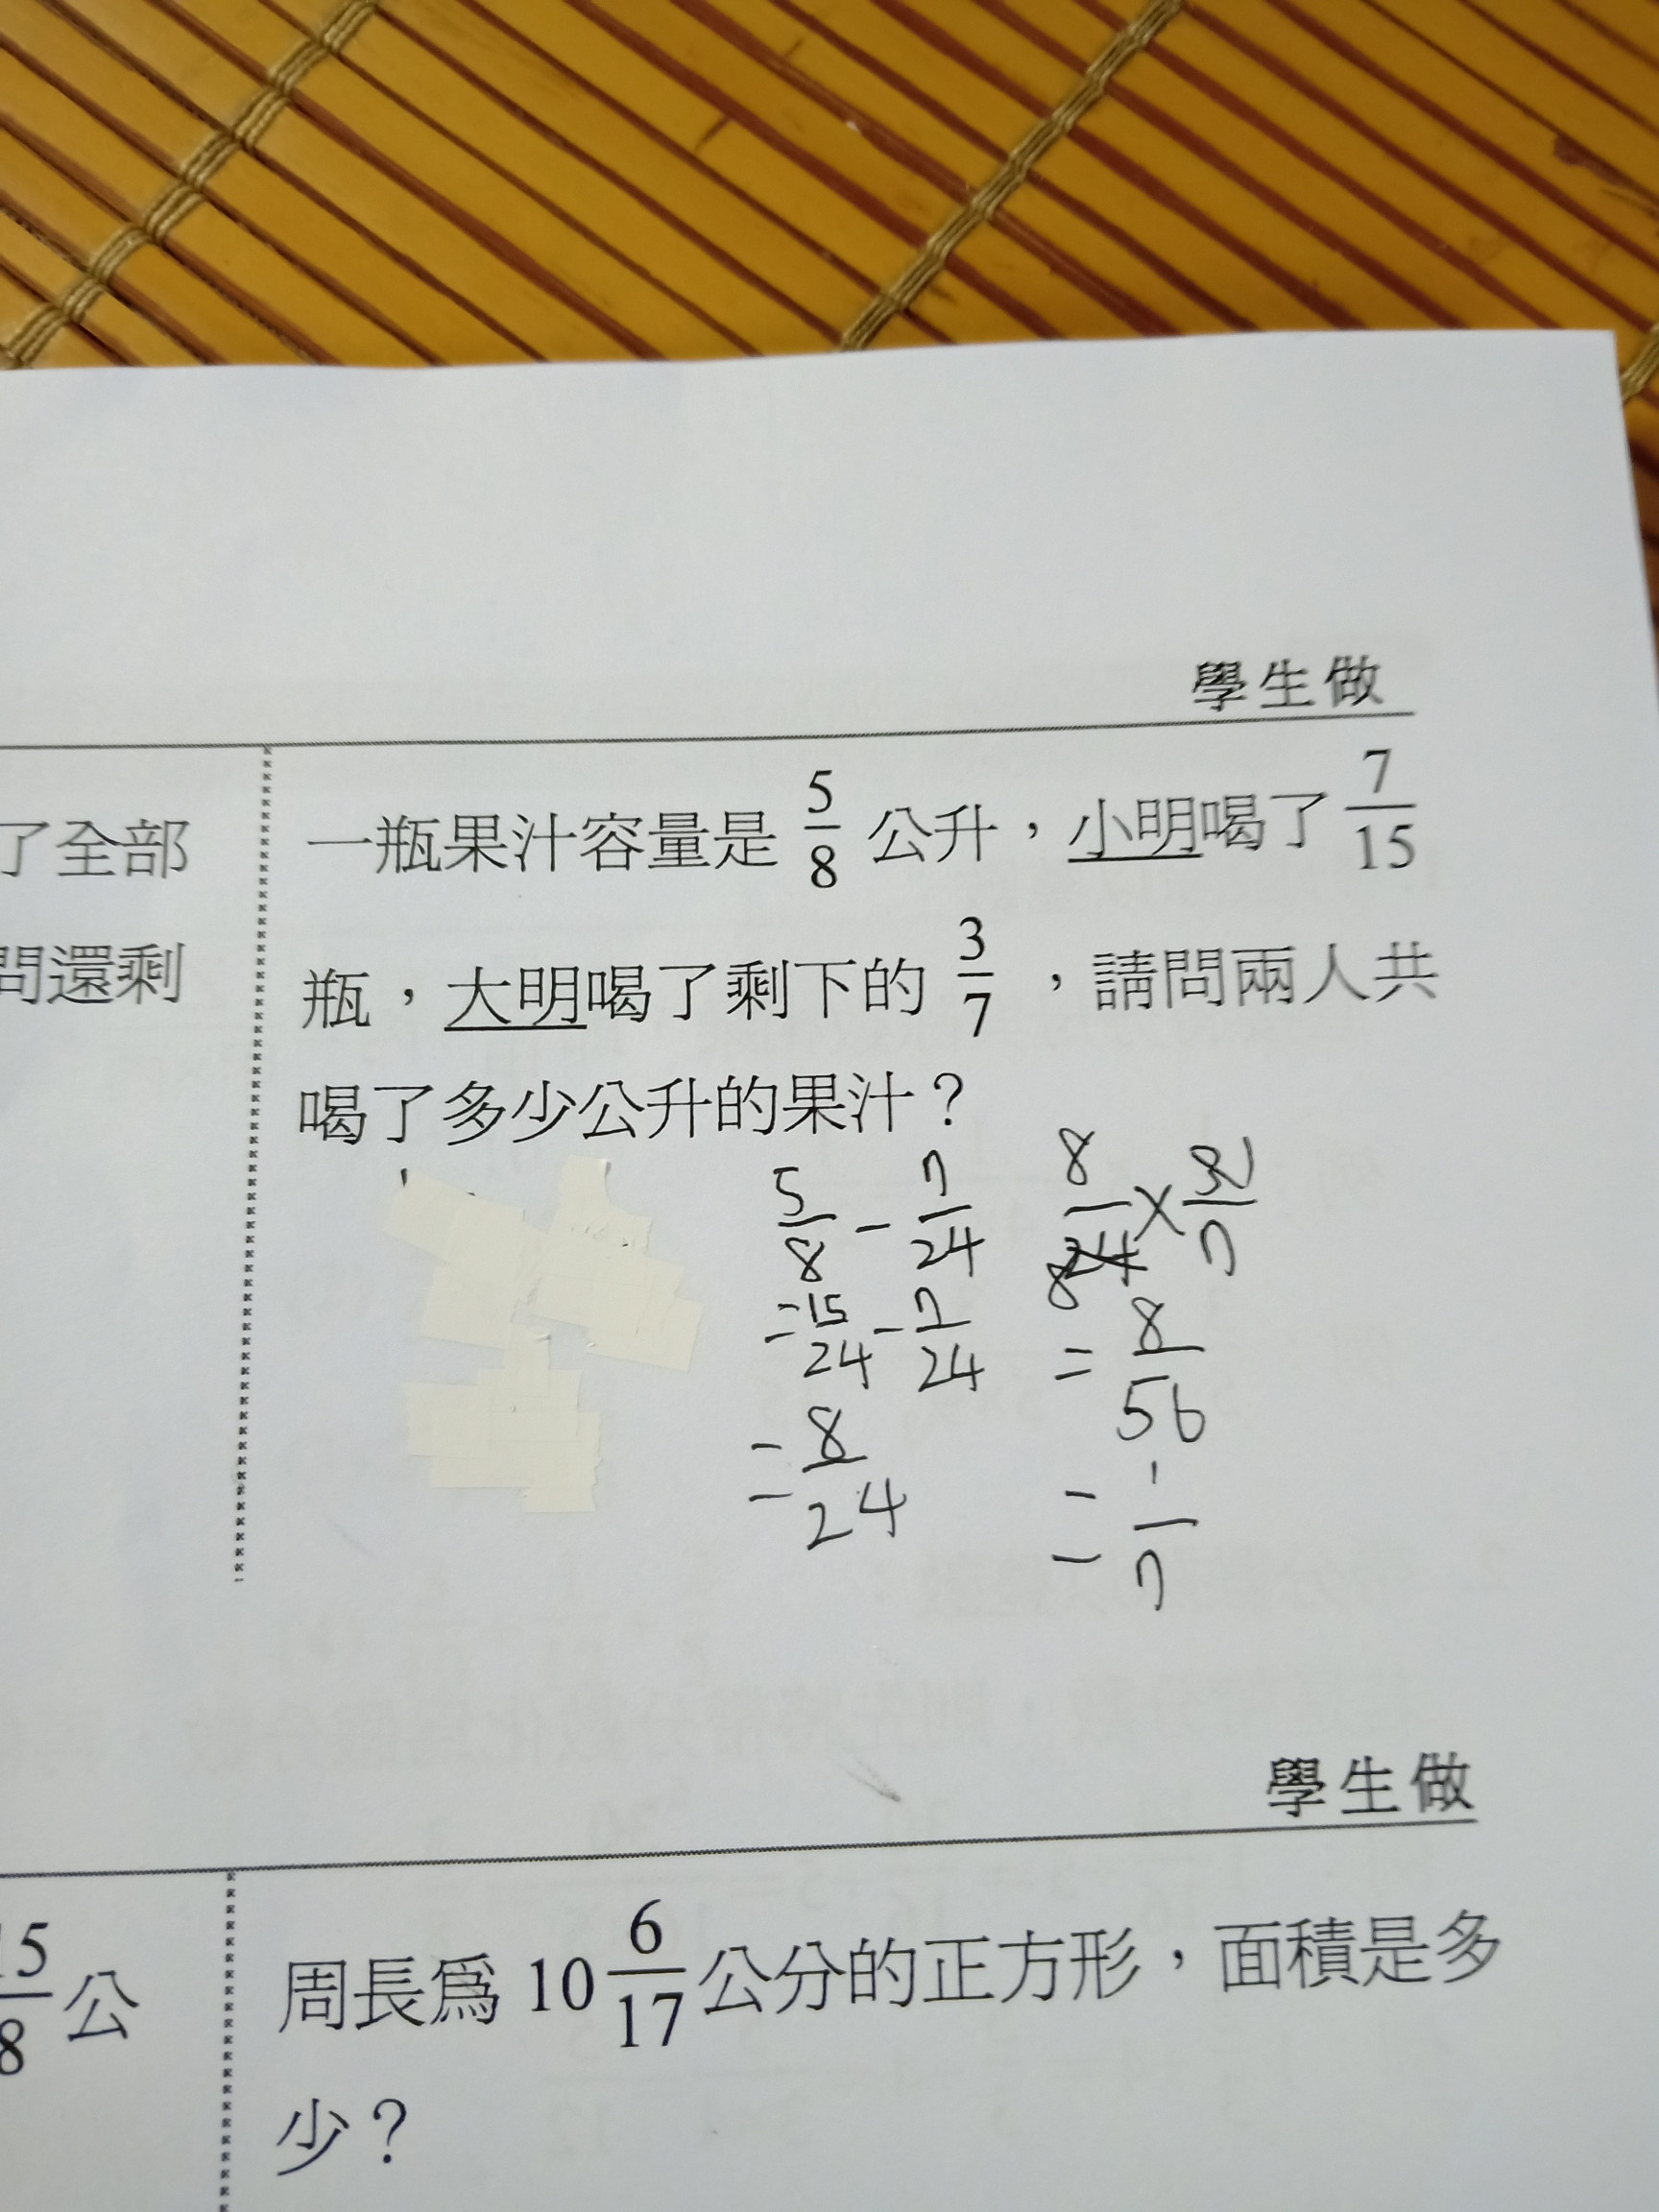 學生做
了全部
問還剩
一瓶果汁容量是 5/8 公升，小明喝了 7/15
瓶，大明喝了剩下的 3/7 ，請問兩人共
喝了多少公升的果汁？
5/8 - 7/24
= 15/24 - 7/24
= 8/24
8/24 × 3/7
8
= 8/56
= 1/7
學生做
15/8 公
周長為 10 6/17 公分的正方形，面積是多
少？